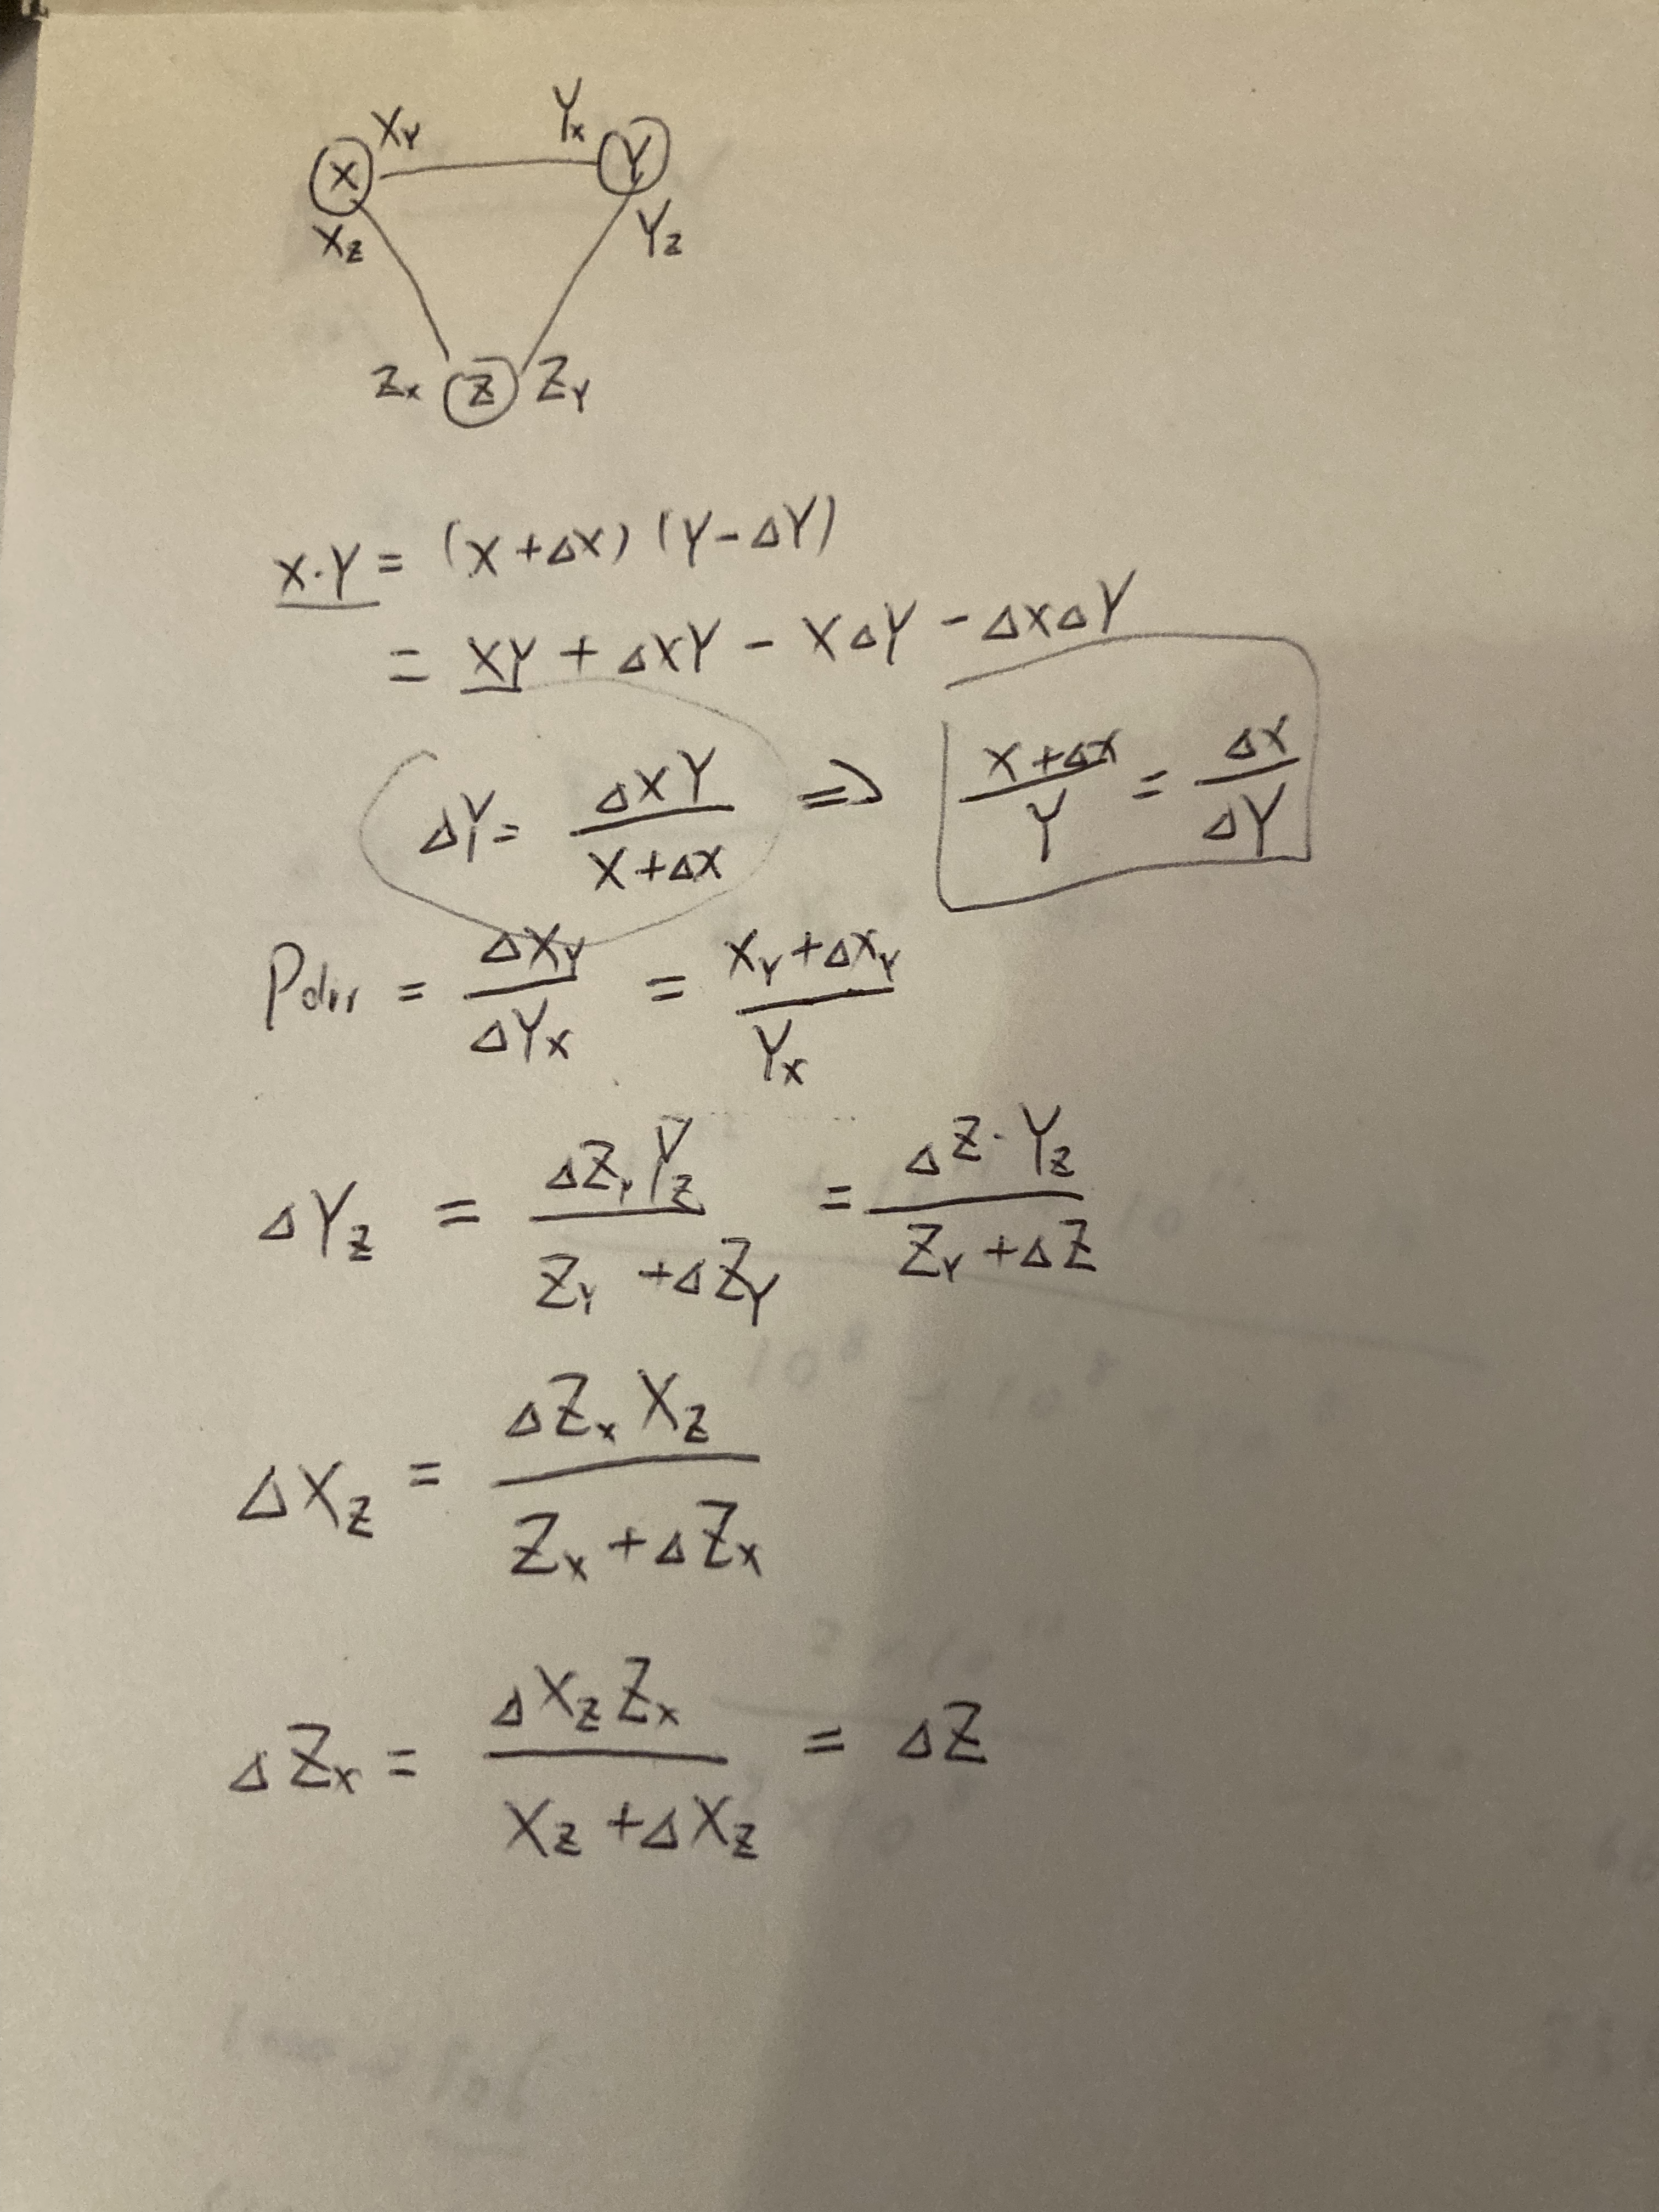 X_Y Y_X
X Y
X_Z Y_Z
Z_X Z Z_Y
X·Y = (X+ΔX) (Y-ΔY)
= XY + ΔXY - XΔY - ΔXΔY
ΔY = ΔXY / (X+ΔX) ⇒ (X+ΔX) / Y = ΔX / ΔY
Pdir = ΔX_Y / ΔY_X = (X_Y+ΔX_Y) / Y_X
ΔY_Z = ΔZ_Y Y_Z / (Z_Y + ΔZ_Y) = ΔZ·Y_Z / (Z_Y + ΔZ)
ΔX_Z = ΔZ_X X_Z / (Z_X + ΔZ_X)
ΔZ_X = ΔX_Z Z_X / (X_Z + ΔX_Z) = ΔZ